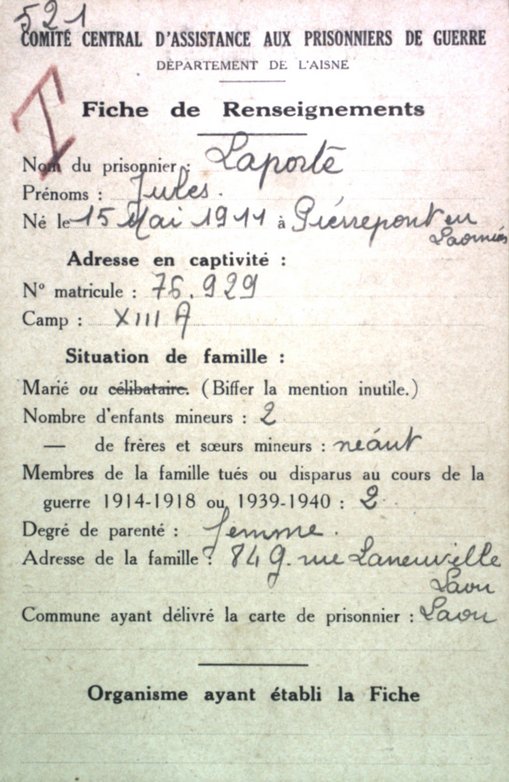 521
COMITÉ CENTRAL D'ASSISTANCE AUX PRISONNIERS DE GUERRE
DÉPARTEMENT DE L'AISNE
I
Fiche de Renseignements
Nom du prisonnier : Laporte
Prénoms : Jules.
Né le 15 Mai 1911 à Pierrepont en
Laonnois
Adresse en captivité :
N° matricule : 76.929
Camp : XIII A
Situation de famille :
Marié ou célibataire. (Biffer la mention inutile.)
Nombre d'enfants mineurs : 2
— de frères et sœurs mineurs : néant
Membres de la famille tués ou disparus au cours de la
guerre 1914-1918 ou 1939-1940 : 2
Degré de parenté : femme.
Adresse de la famille : 849. rue Laneuville
Laon
Commune ayant délivré la carte de prisonnier : Laon
Organisme ayant établi la Fiche